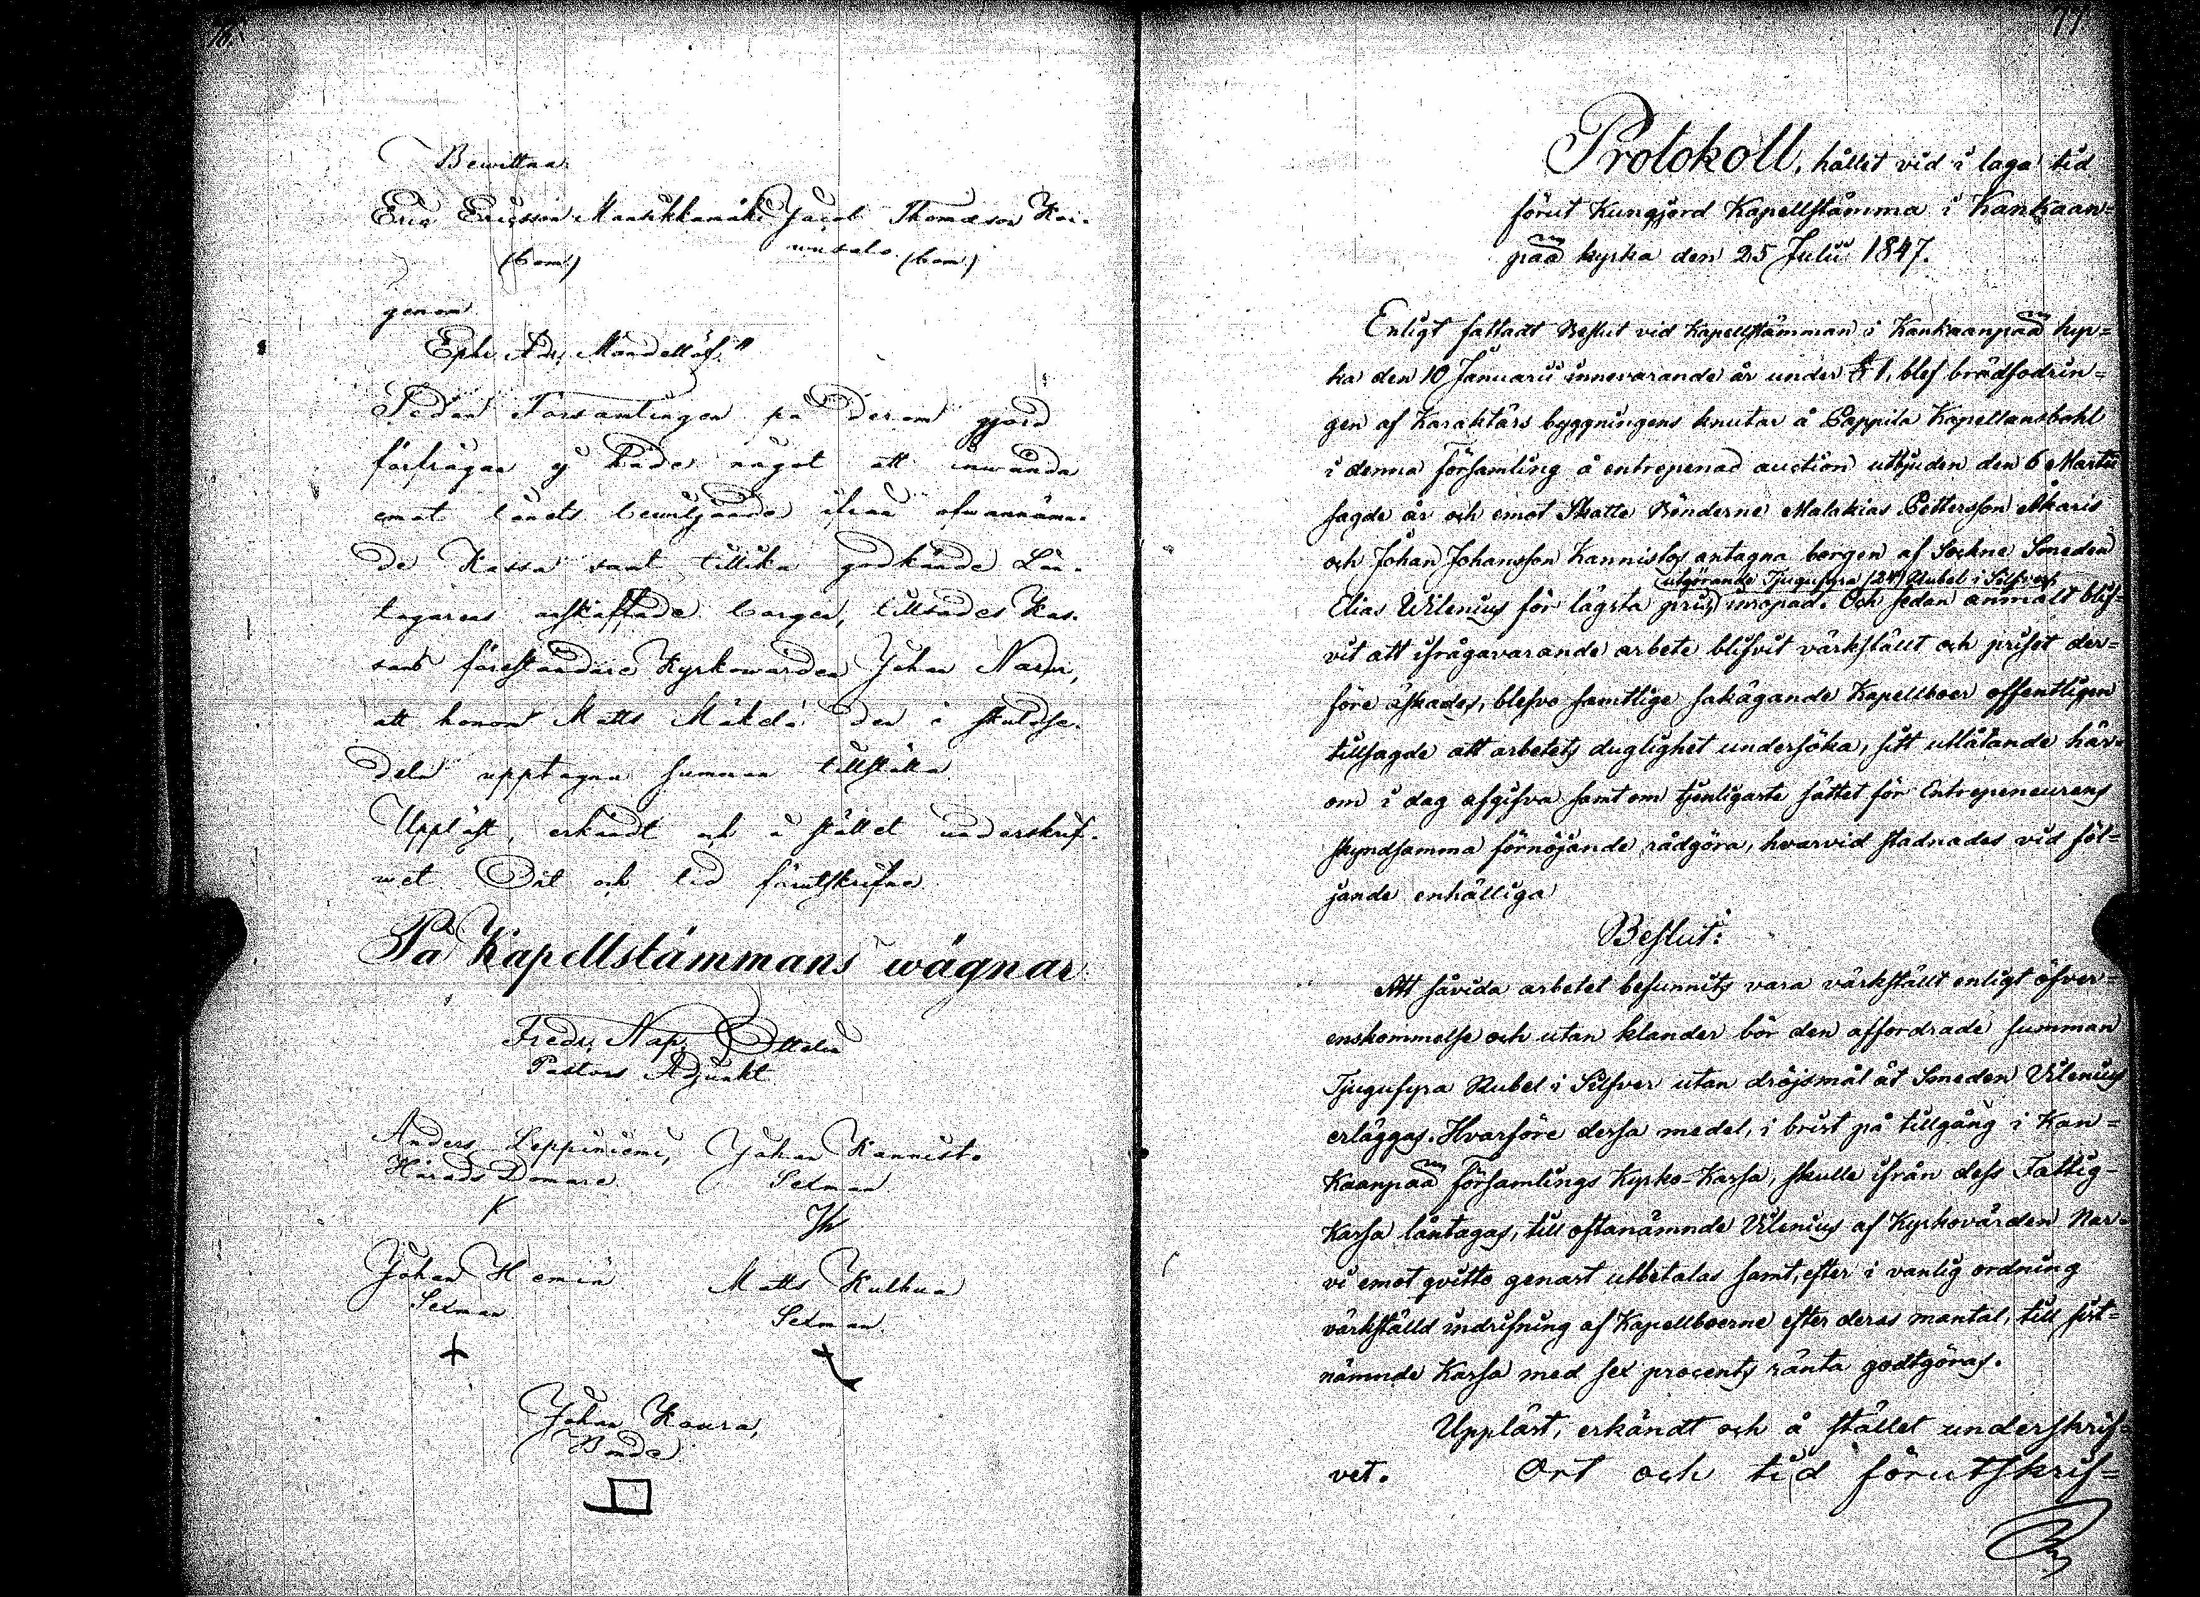 76.
Bewittna
Eric Ericsson Mansikkamäki Jacob Thomasson Koi-
(bom.) wusalo (bom.)
genom
Eph. Ad. Mandellöf."
Sedan Församlingen på derom gjord
förfrågan ej hade något att inwända
emot lånets bewiljande ifrån ofwannämn-
de Kassa samt tillika godkände Lån-
tagarens anskaffade borgen, tillsades Kas-
sans föreståndare Kyrkowärden Johan Narwi,
att honom Matts Mäkelä den i skuldse-
deln upptagna summan tillställa
Uppläst, erkändt och å stället underskrif-
wet Ort och tid förutskrifne
På Kapellstämmans wägnar
Fredr. Nap.
Pastors Adjunkt
Anders Leppiniemi, Johan Kannisto
Härads Domare Sexman
Johan Matts
Sexman Sexman
Johan Koura,
Bonde
77
Protokoll, hållit vid i laga tid
förut Kungjord Kapellstämma i Kankaan=
pää kyrka den 25 Julii 1847.
Enligt fattadt Beslut vid Kapellstämman i Kankaanpää kyr=
ka den 10 Januarii innevarande år under § 1, blef brädfodrin=
gen af Karaktärs byggningens knutar å Pappila Kapellansbohl
i denna församling å entrepenad auction utbjuden den 6 Martii
sagde år och emot Skatte Bönderne Malakias Pettersson Åkaris
och Johan Johansson Kannistos antagna borgen af Sockne Smeden
utgörande Tjugufyra (24) Rubel i Silfver
Elias Wilenius för lägsta pris, inropad. Och sedan anmält blif=
vit att ifrågavarande arbete blifvit värkställt och priset der=
före äskades, blefvo samtlige sakägande Kapellboer offentligen
tillsagde att arbetets duglighet undersöka, sitt utlåtande här=
om i dag afgifva samt om tjenligaste sättet för Entrepeneurens
skyndsamma förnöjande rådgöra, hvarvid stadnades vid föl=
jande enhälliga
Beslut:
Att såvida arbetet befunnits vara värkställt enligt öfver=
enskommelse och utan klander bör den affordrade summan
Tjugufyra Rubel i Silfver utan dröjsmål åt Smeden Vilenius
erläggas. Hvarföre dessa medel, i brist på tillgång i Kan=
kaanpää församlings Kyrko-Kassa, skulle ifrån dess Fattig-
Kassa låntagas, till oftanämnde Vilenius af Kyrkovärden Nar=
vi emot qvitto genast utbetalas samt, efter i vanlig ordning
värkställd indrifning af Kapellboerne efter deras mantal, till sist=
nämnde Kassa med sex procents ränta godtgöras.
Uppläst, erkändt och å stället underskrif=
vet. Ort och tid förutskrif=